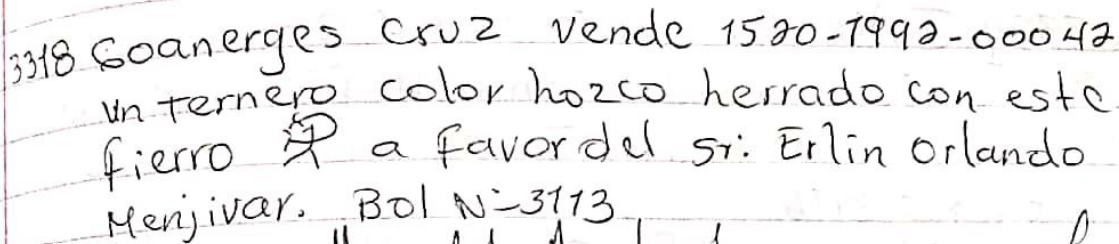 3318 Goanerges Cruz vende 1520-1992-00042
un ternero color hozco herrado con este
fierro a favor del sr: Erlin Orlando
Menjivar. Bol N-3113